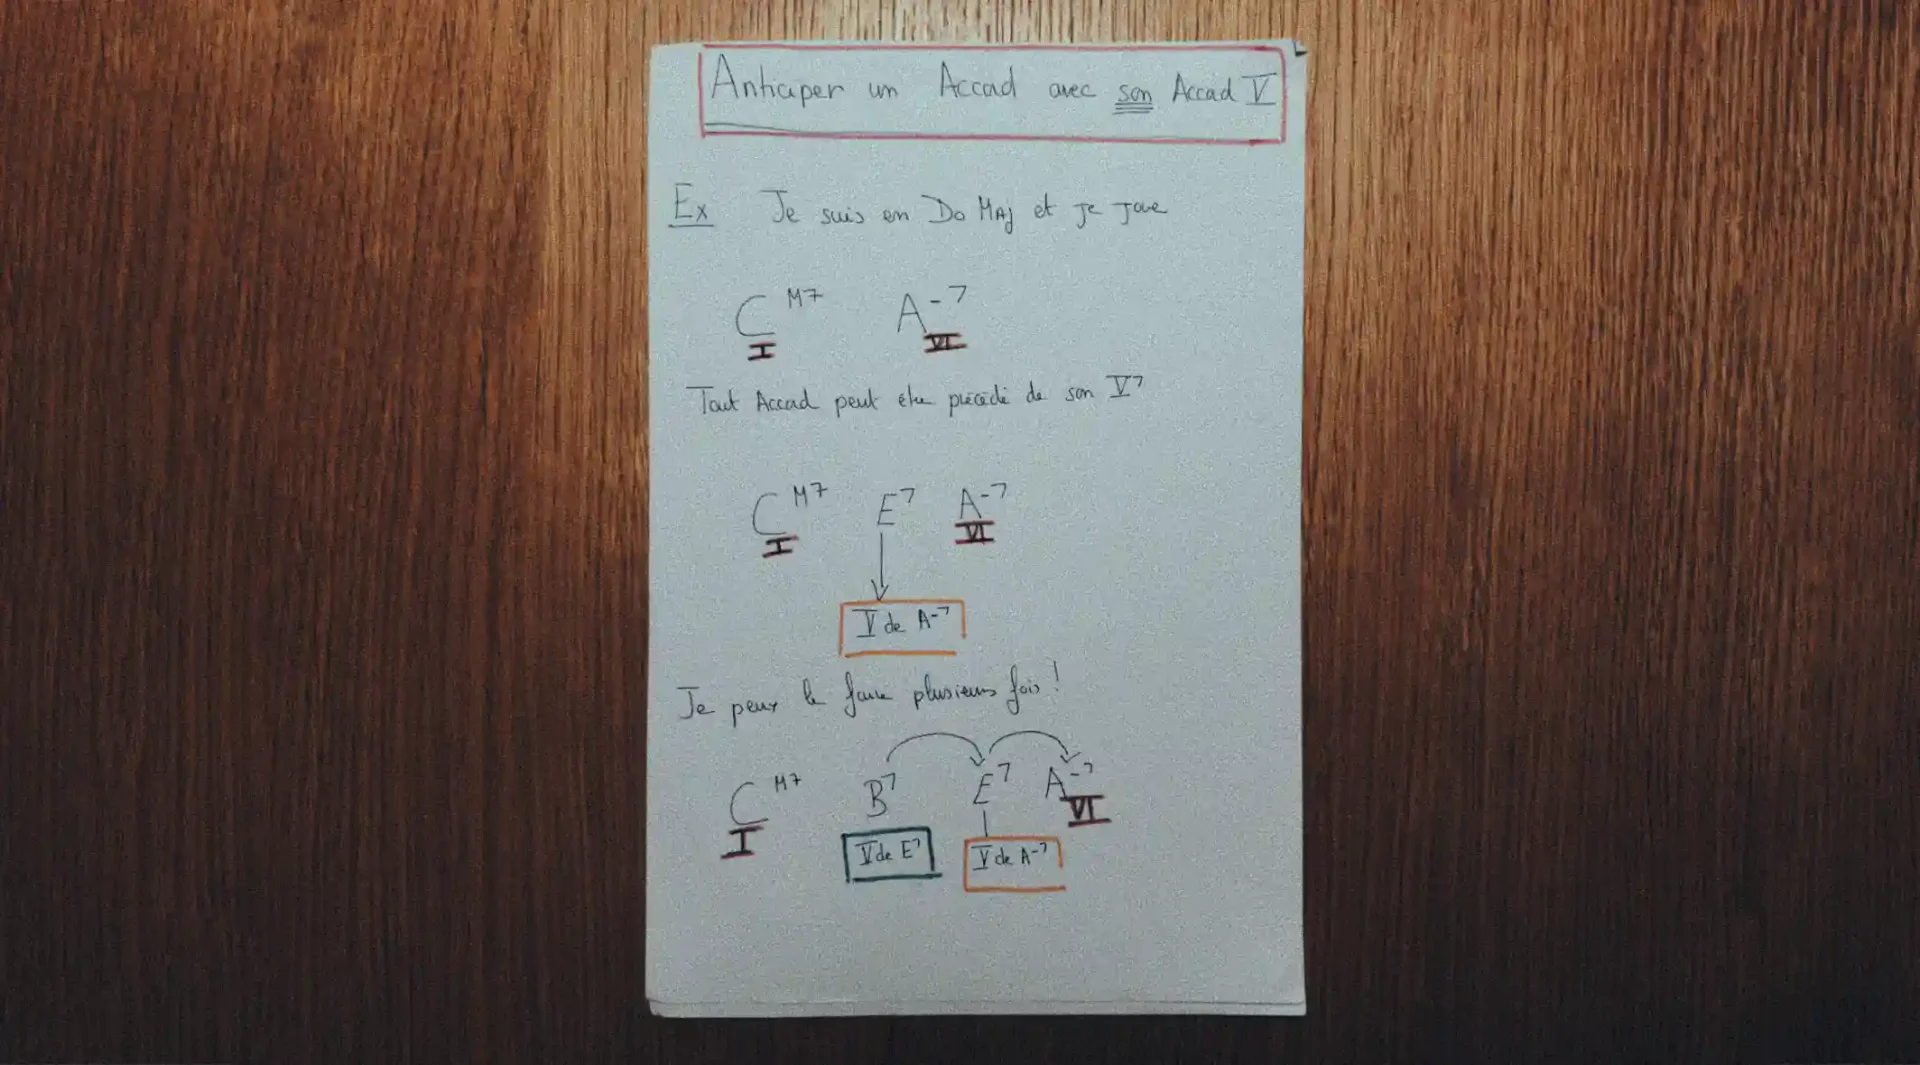 Anticiper un Accord avec son Accord V
Ex Je suis en Do Maj et je joue
C M7 A-7
I VI
Tout Accord peut être précédé de son V7
C M7 E7 A-7
I VI
V de A-7
Je peux le faire plusieurs fois !
C M7 B7 E7 A-7
I VI
V de E7 V de A-7